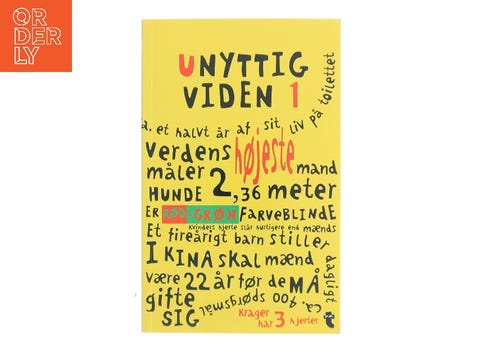 ORDERLY
UNYTTIG
VIDEN 1
ca. et halvt år af sit liv på toilettet
verdens højeste mand
måler 2,36 meter
HUNDE
ER RØD-GRØN FARVEBLINDE
Kvinders hjerte slår hurtigere end mænds
Et fireårigt barn stiller
ca. 400 spørgsmål dagligt
I KINA skal mænd
være 22 år før de MÅ
gifte
SIG
Krager
har 3 hjerter
t